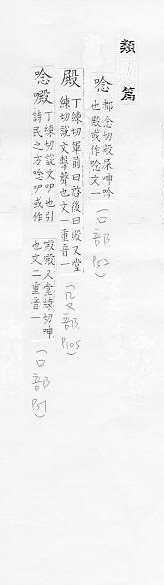 類篇
唸 都念切殿屎呻吟
也殿或作唸文一
(口部 P52)
殿 丁練切軍前曰啓後曰殿又堂
練切說文擊聲也文一重音一
(殳部 P105)
唸㕧 丁練切說文呻也引
詩民之方唸㕧或作
㕧殿又堂練切呻
也文二重音一
(口部 P51)